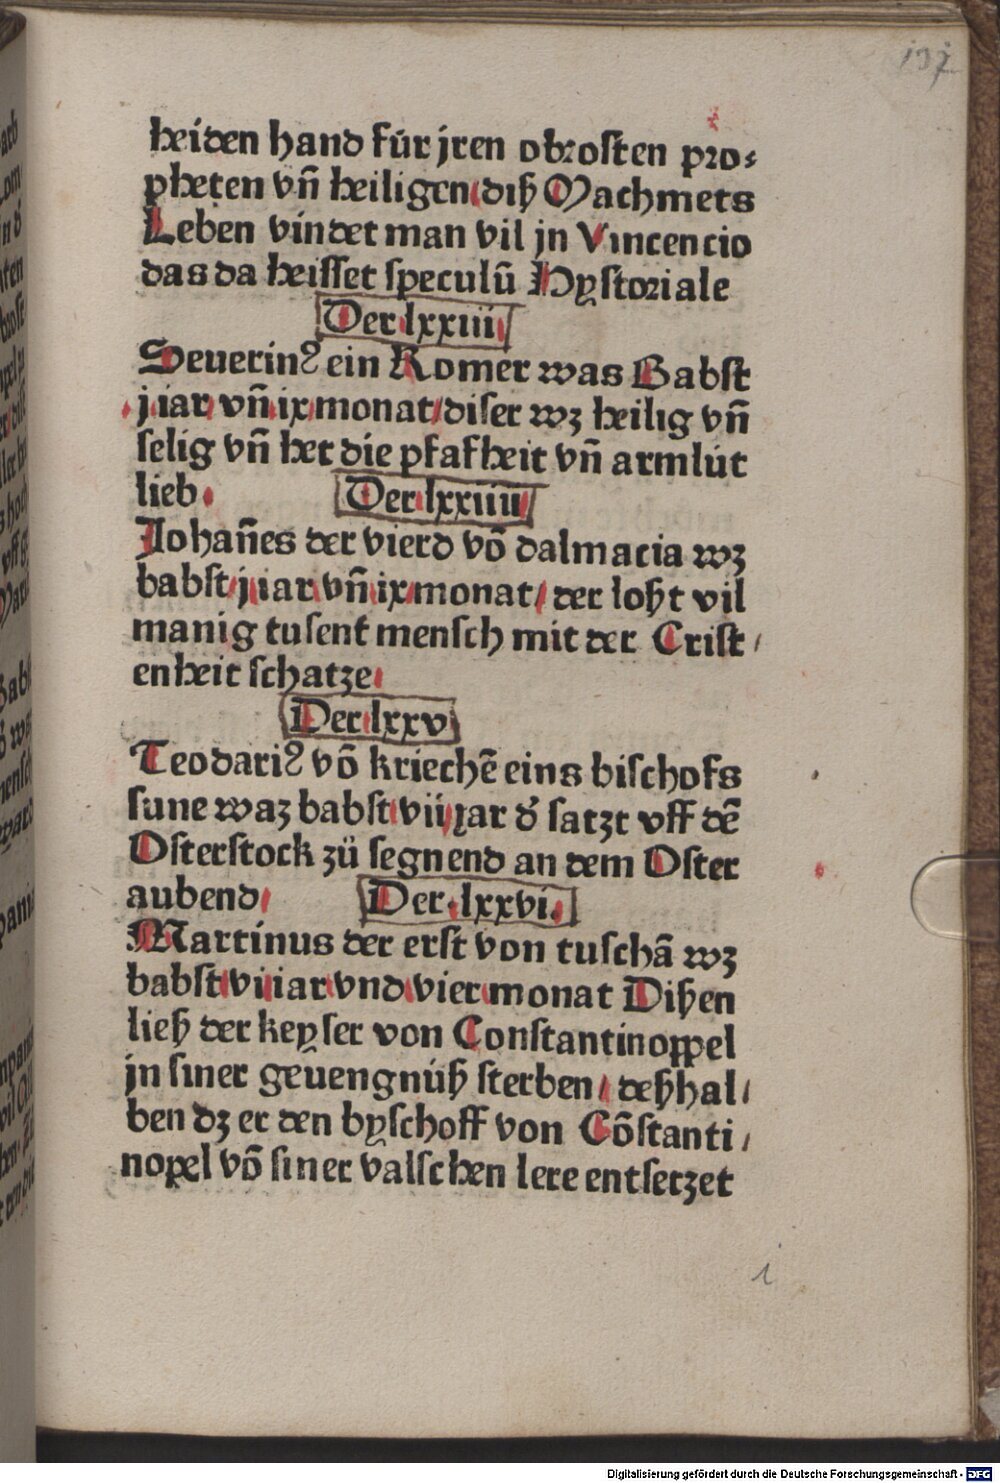 137
heiden hand fúr jren obrosten pro⸗
pheten vñ heiligen diß Machmets
Leben vindet man vil jn Vincencio
das da heisset speculū Hystoriale
Der lxxiii
Seuerinꝰ ein Romer was Babst
j iar vñ ix monat diser wz heilig vñ
selig vñ het die pfafheit vñ armlút
lieb.
Der lxxiiii
Johañes der vierd võ dalmacia wz
babst j iar vñ ix monat / der loßt vil
manig tusent mensch mit der Crist /
enheit schatze
Der lxxv
Teodariꝰ võ kriechē eins bischofs
sune waz babst vii jar d' satzt vff dē
Osterstock zü segnend an dem Oster
aubend
Der.lxxvi.
Martinus der erst von tuschā wz
babst vi iar vnd vier monat Dißen
ließ der keyser von Constantinoppel
jn siner geuengnúß sterben / deßhal /
ben dz er den byschoff von Cōstanti /
nopel võ siner valschen lere entsetzet
i
Digitalisierung gefördert durch die Deutsche Forschungsgemeinschaft - DFG